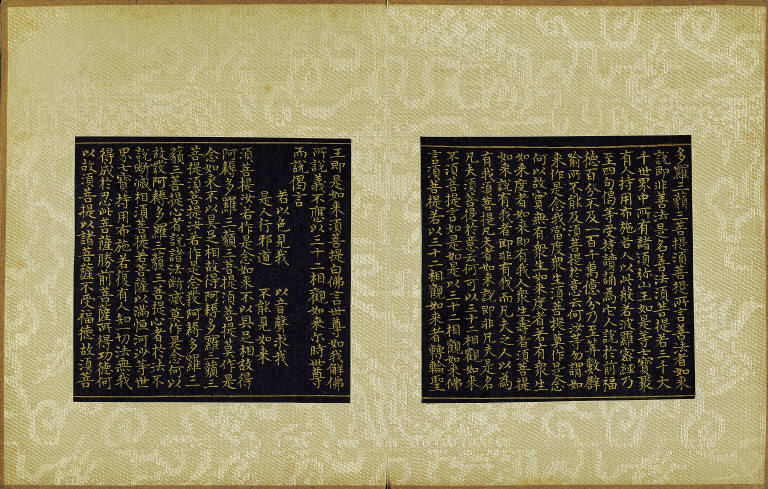 多羅三藐三菩提須菩提所言善法者如來
說即非善法是名善法須菩提若三千大
千世界中所有諸須弥山王如是等七寶聚
有人持用布施若人以此般若波羅蜜經乃
至四句偈等受持讀誦為它人說於前福
德百分不及一百千萬億分乃至算數譬
喻所不能及須菩提於意云何汝等勿謂如
來作是念我當度衆生須菩提莫作是念
何以故實無有衆生如來度者若有衆生
如來度者如來即有我人衆生壽者須菩提
如來說有我者即非有我而凡夫之人以為
有我須菩提凡夫者如來說即非凡夫是名
凡夫須菩提於意云何可以三十二相觀如來
不須菩提言如是如是以三十二相觀如來佛
言須菩提若以三十二相觀如來者轉輪聖
王即是如來須菩提白佛言世尊如我解佛
所說義不應以三十二相觀如來尒時世尊
而說偈言
若以色見我 以音聲求我
是人行邪道 不能見如來
須菩提汝若作是念如來不以具足相故得
阿耨多羅三藐三菩提須菩提莫作是
念如來不以具足相故得阿耨多羅三藐三
菩提須菩提汝若作是念發阿耨多羅三
藐三菩提心者說諸法斷滅莫作是念何以
故發阿耨多羅三藐三菩提心者於法不
說斷滅相須菩提若菩薩以滿恒河沙等世
界七寶持用布施若復有人知一切法無我
得成於忍此菩薩勝前菩薩所得功德何
以故須菩提以諸菩薩不受福德故須菩